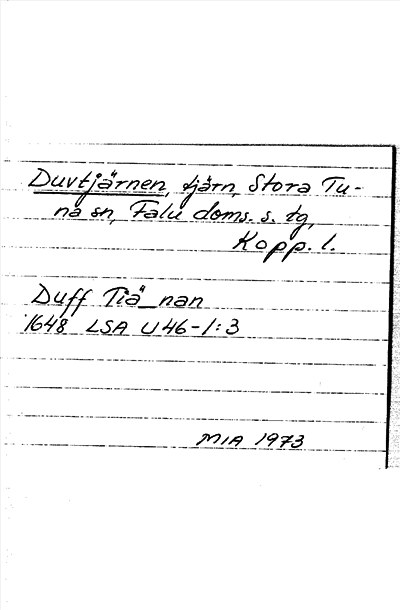 Duvtjärnen, tjärn, Stora Tu-
na sn, Falu doms. s. tg,
Kopp. l.
Duff Tiä_nan
1648 LSA U46-1:3
MIA 1973